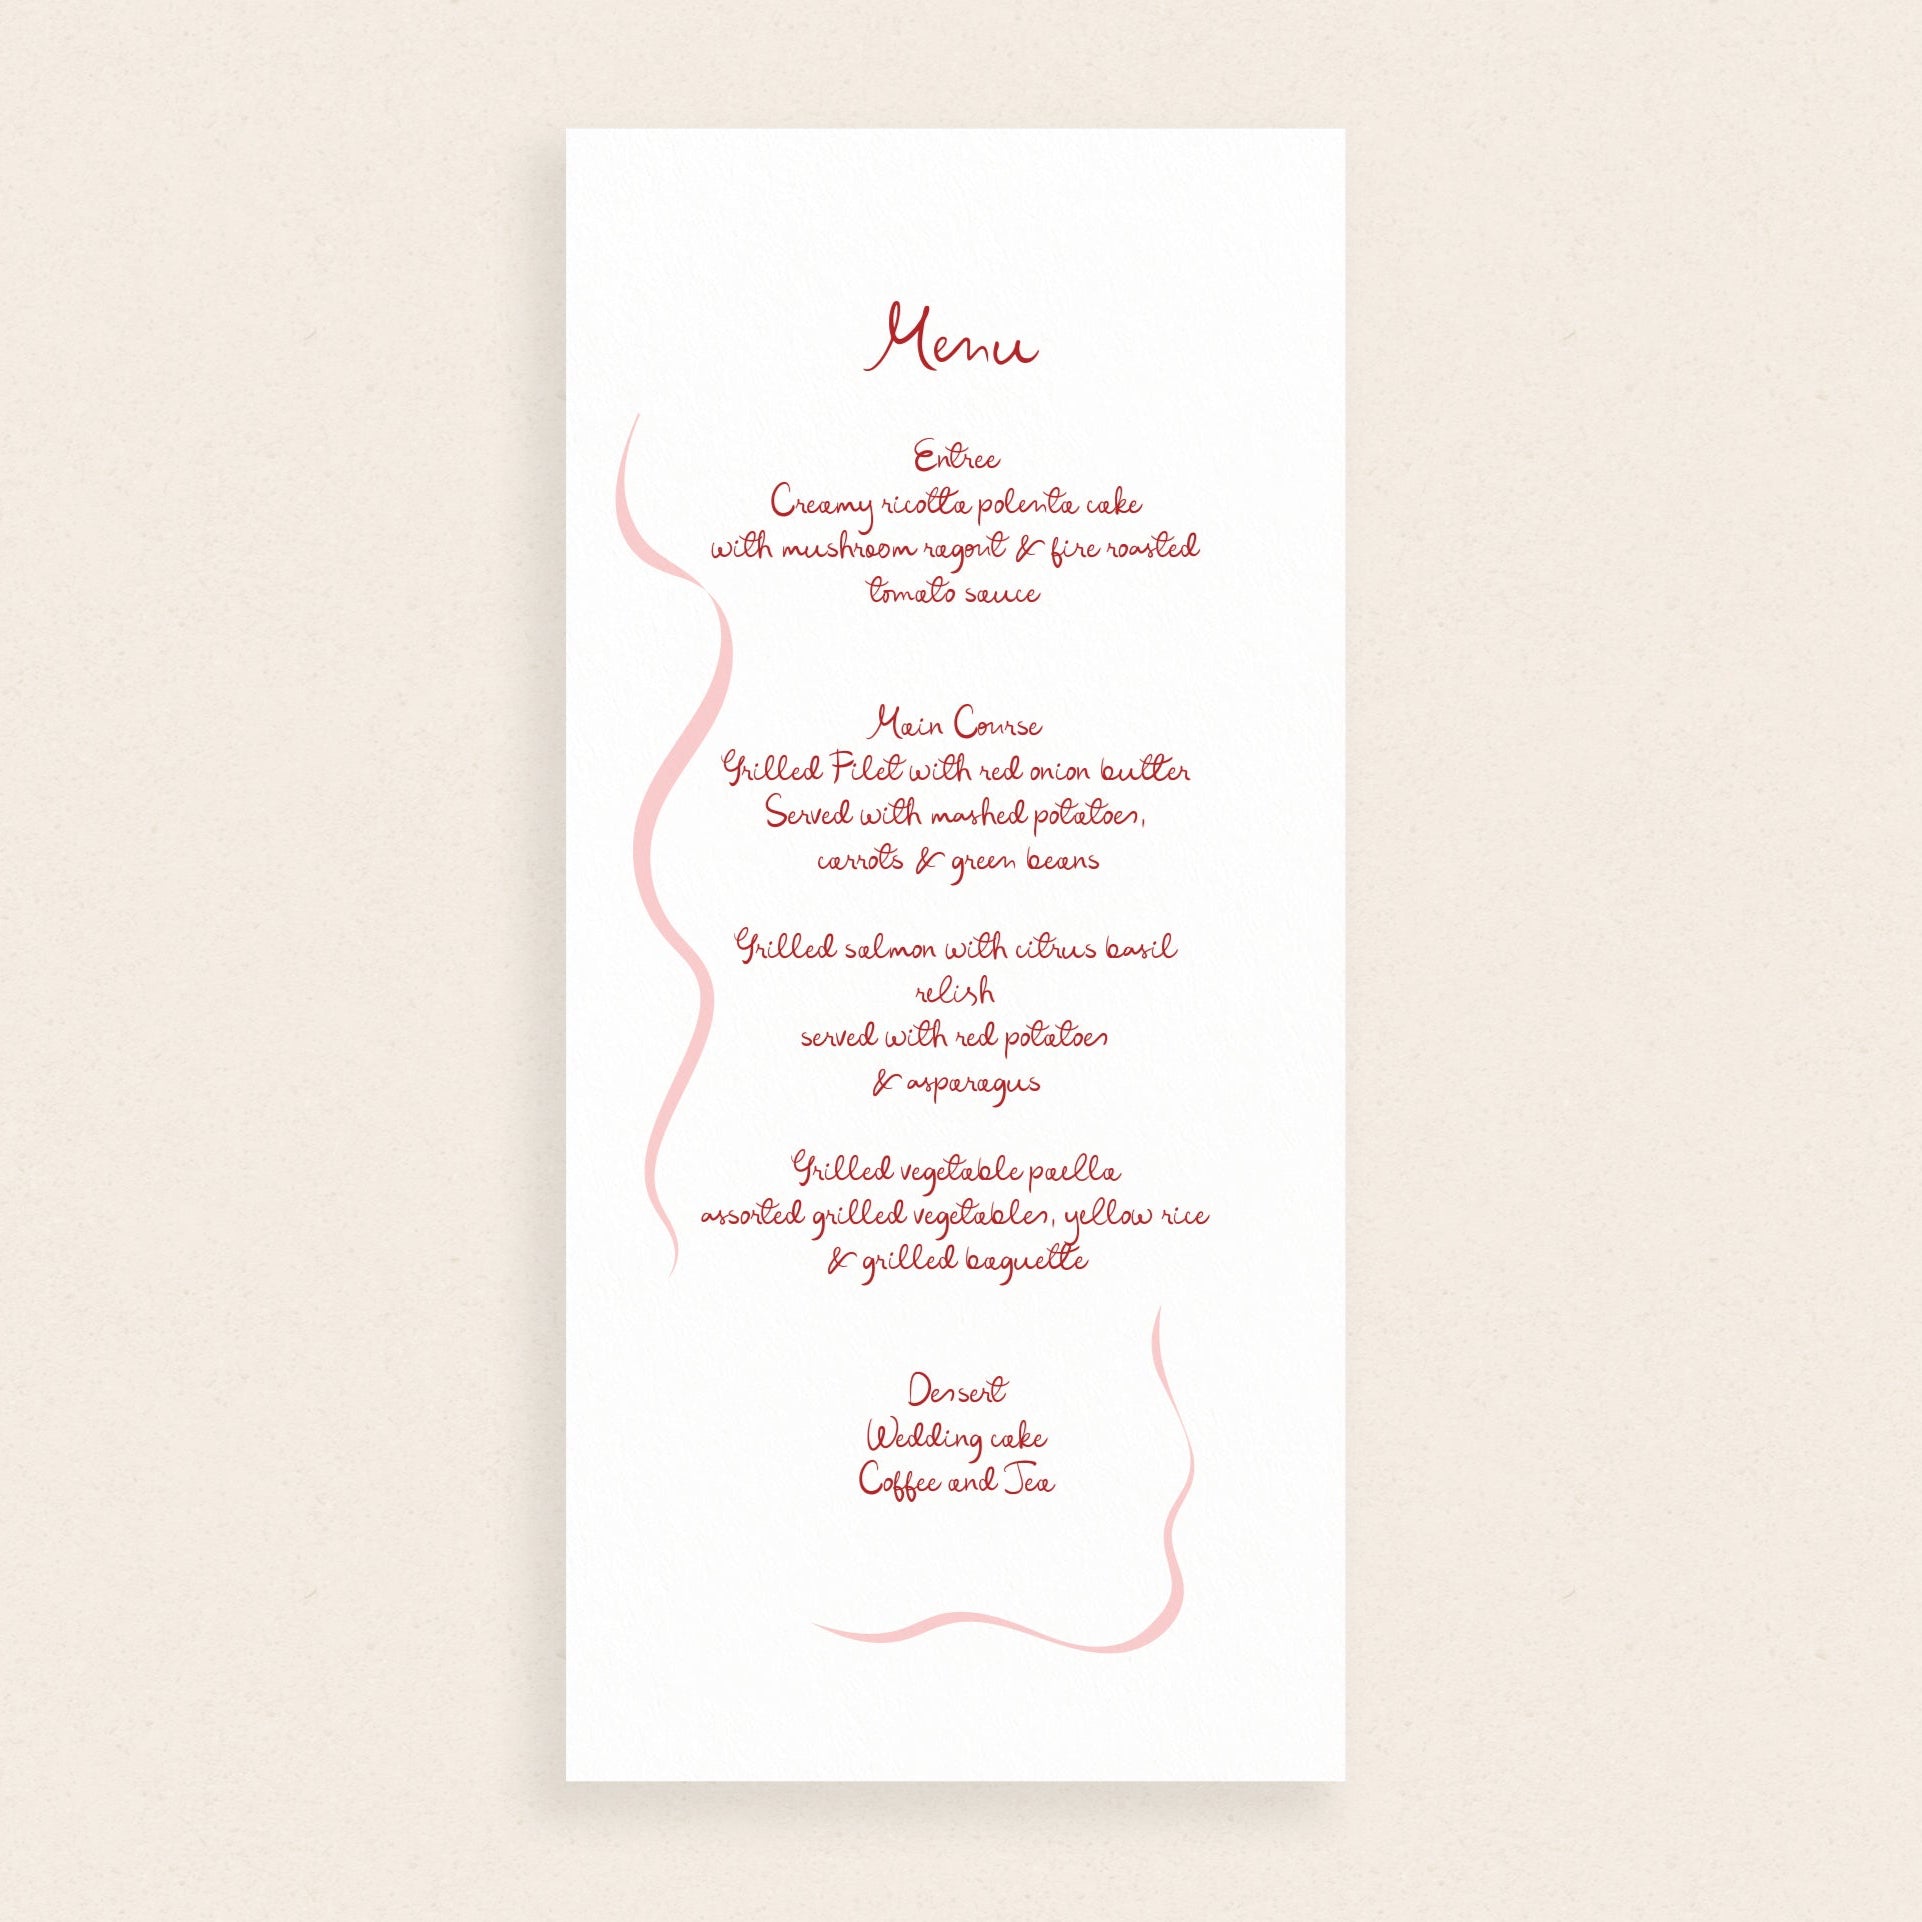 Menu
Entree
Creamy ricotta polenta cake
with mushroom ragout & fire roasted
tomato sauce
Main Course
Grilled Filet with red onion butter
Served with mashed potatoes,
carrots & green beans
Grilled salmon with citrus basil
relish
served with red potatoes
& asparagus
Grilled vegetable paella
assorted grilled vegetables, yellow rice
& grilled baguette
Dessert
Wedding cake
Coffee and Tea